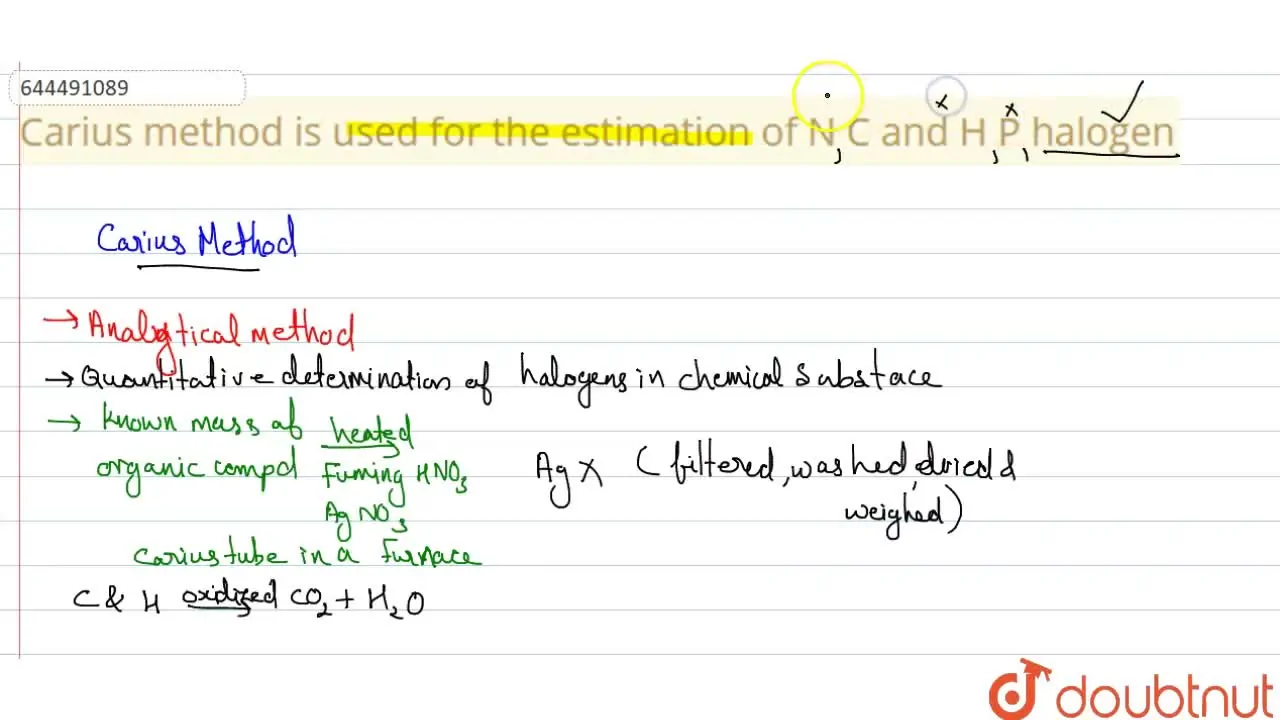 644491089
Carius method is used for the estimation of N, C and H, P, halogen
Carius Method
→ Analytical method
→ Quantitative determination of halogens in chemical substace
→ Known mass of heated
organic compd Fuming HNO3
AgNO3
AgX (filtered, washed, dried &
weighed)
carius tube in a furnace
C & H oxidized CO2 + H2O
doubtnut